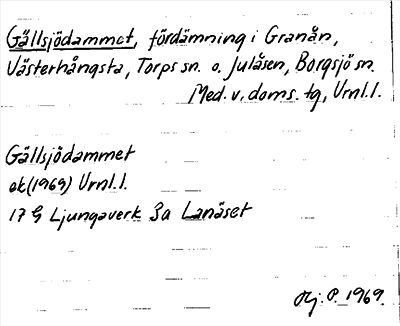 Gällsjödammet, fördämning i Granån,
Västerhångsta, Torps sn. o. Julåsen, Borgsjö sn.
Med. v. doms. tg, Vrnl.l.
Gällsjödammet
ek(1969) Vrnl.l.
17 G Ljungaverk 3a Lanäset
Hj. P. 1969.